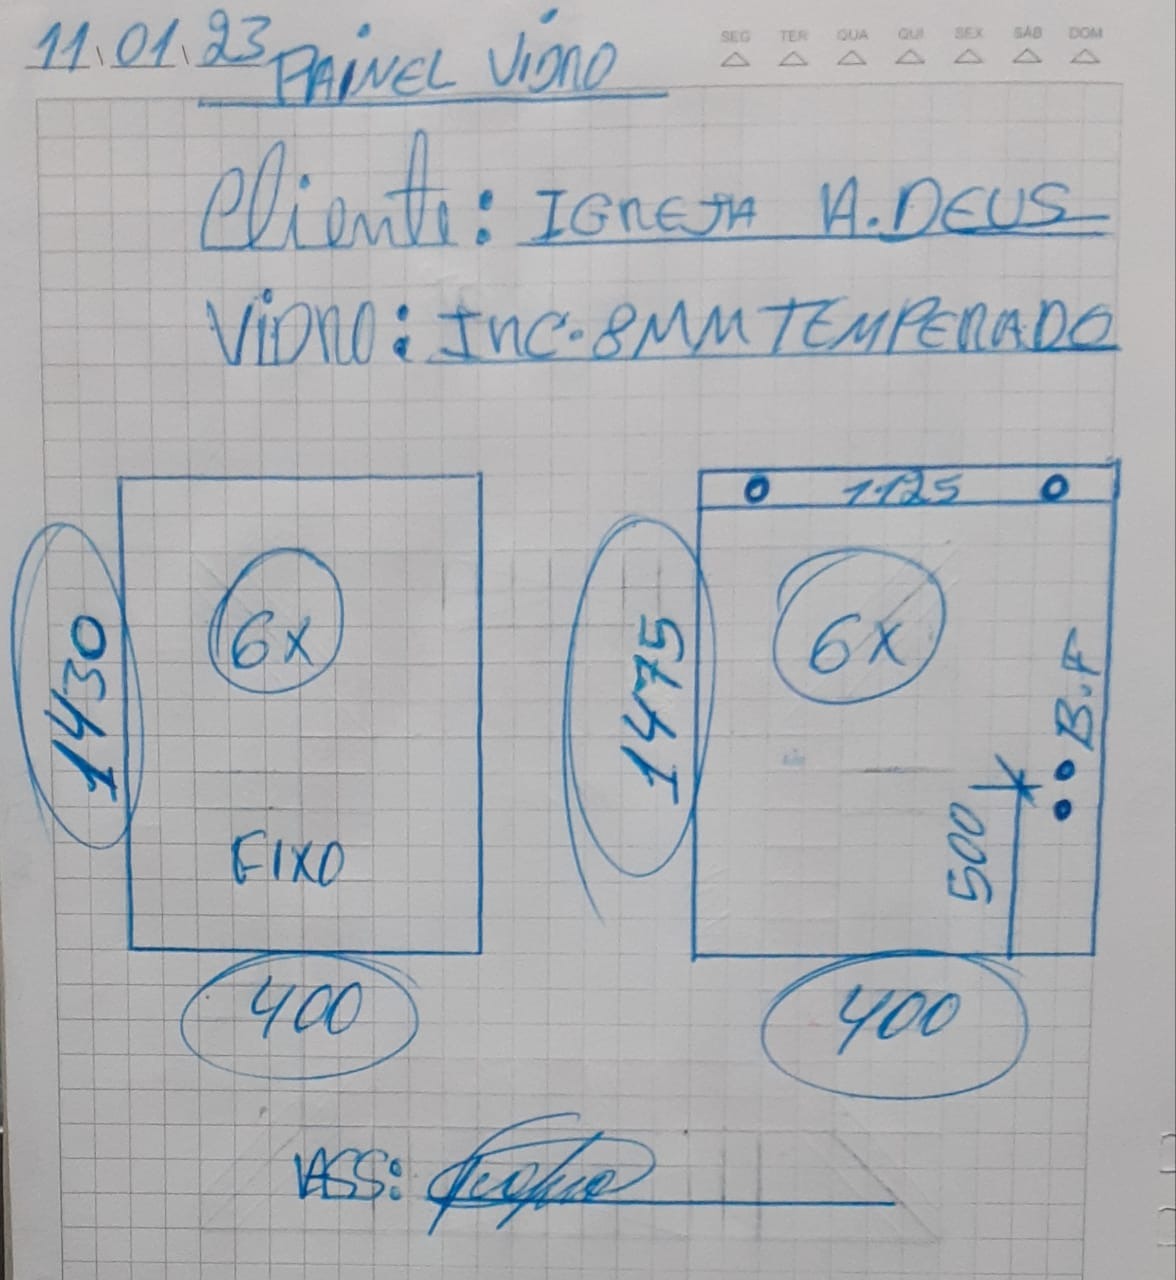 11.01.23
PAINEL VIDRO
SEG TER QUA QUI SEX SÁB DOM
Cliente: IGREJA A.DEUS
VIDRO: INC. 8MM TEMPERADO
1125
6x
6x
1430
1475
B.F
500
FIXO
400
400
ASS: